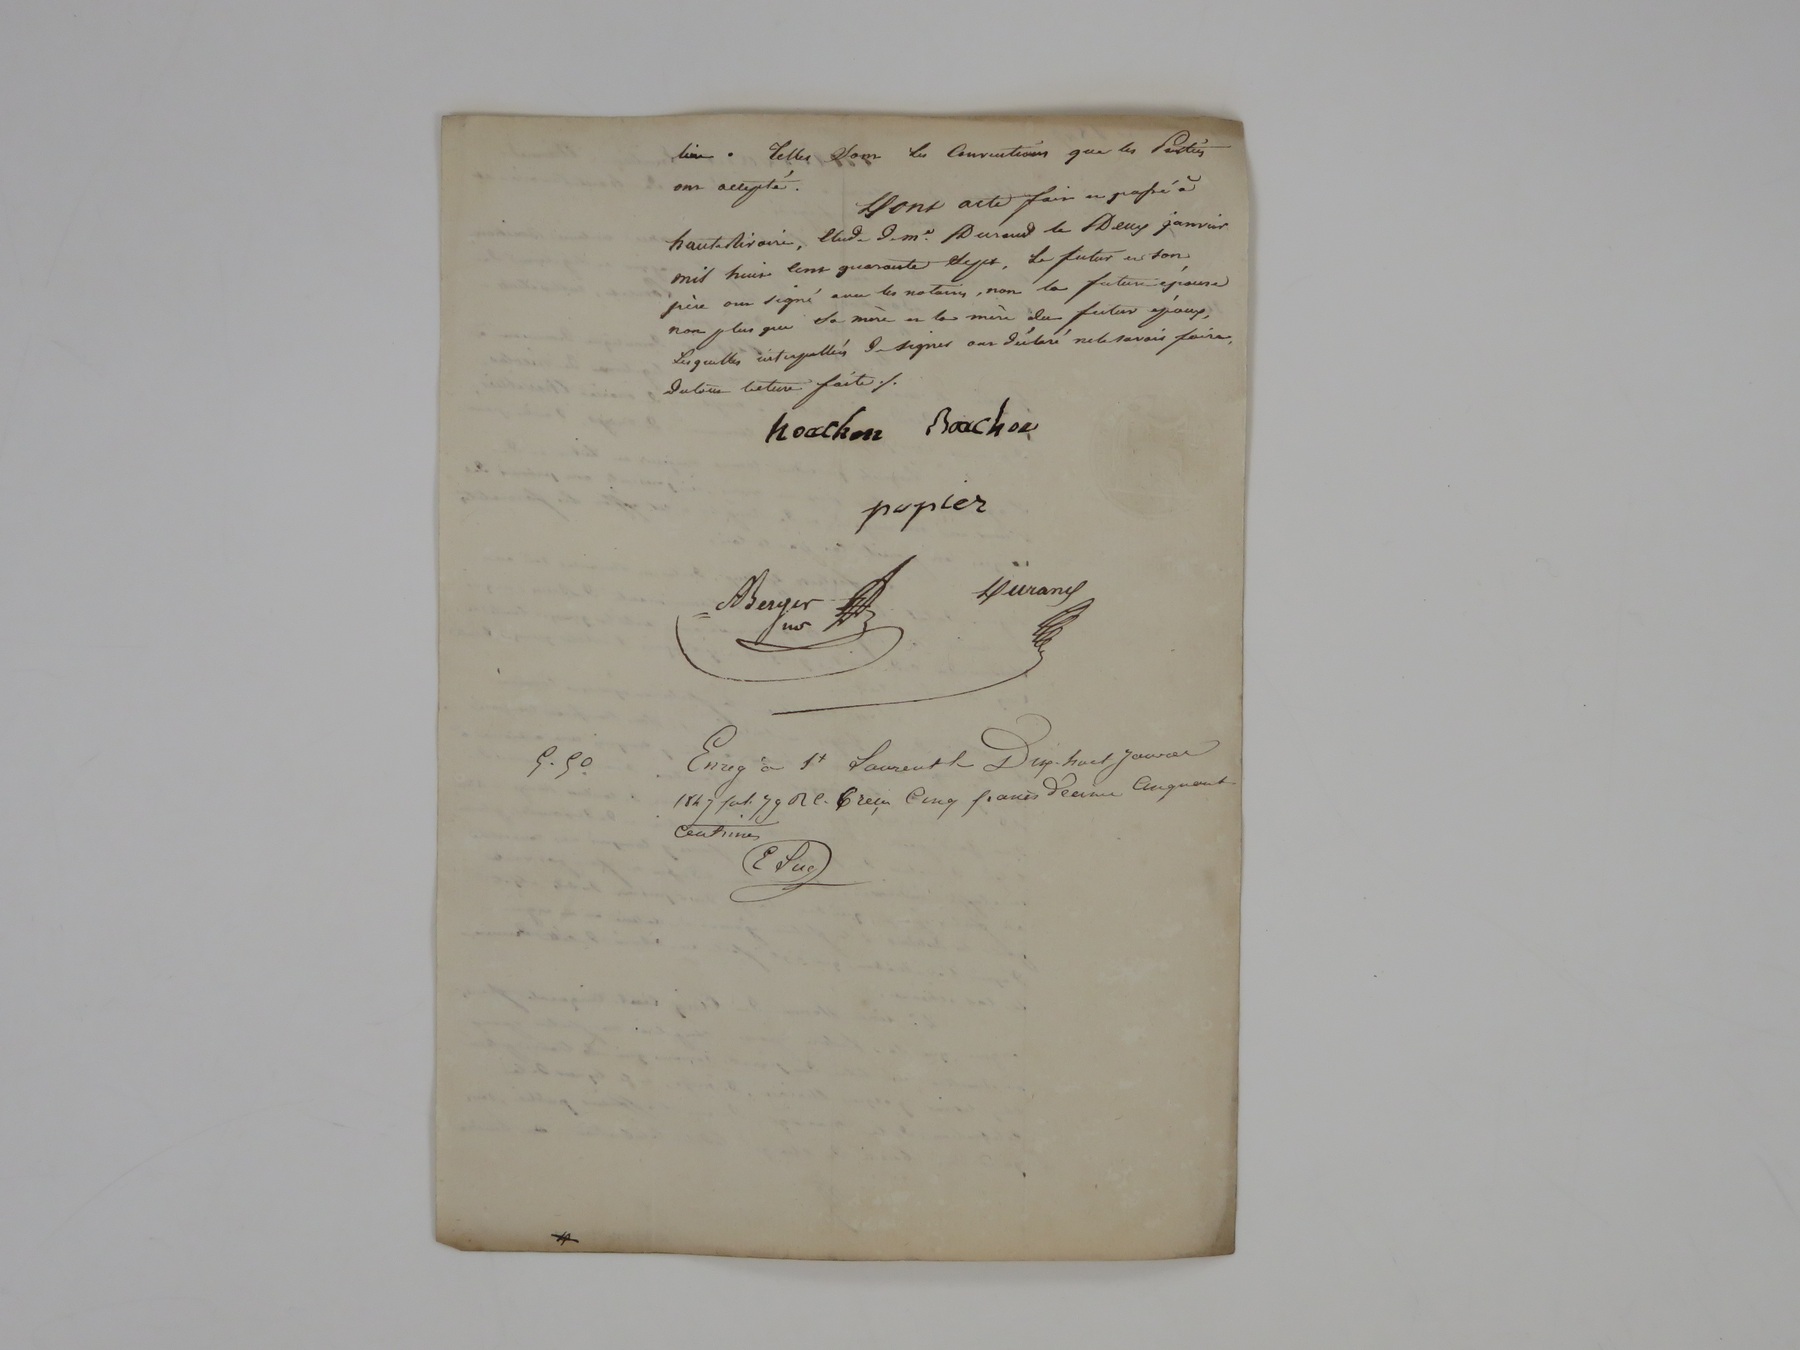 lieu. Telles sont les Conventions que les Parties
ont accepté.
Dont acte fait et passé à
hauterivoire, Etude de me. Durand le Deux janvier
mil huit cent quarante sept, Le futur et son
père ont signé avec les notaires, non la future épouse
non plus que sa mère et la mère du futur époux,
Lesquelles interpellées de signer ont déclaré ne le savoir faire,
du tout lecture faite ./.
hoachon Boachon
papier
ABerger Durand
no
5.50. Enreg à St Laurent le Dix-huit Janvier
1847 fol. 79 R C. Reçu Cinq francs décime Cinquante
Centimes